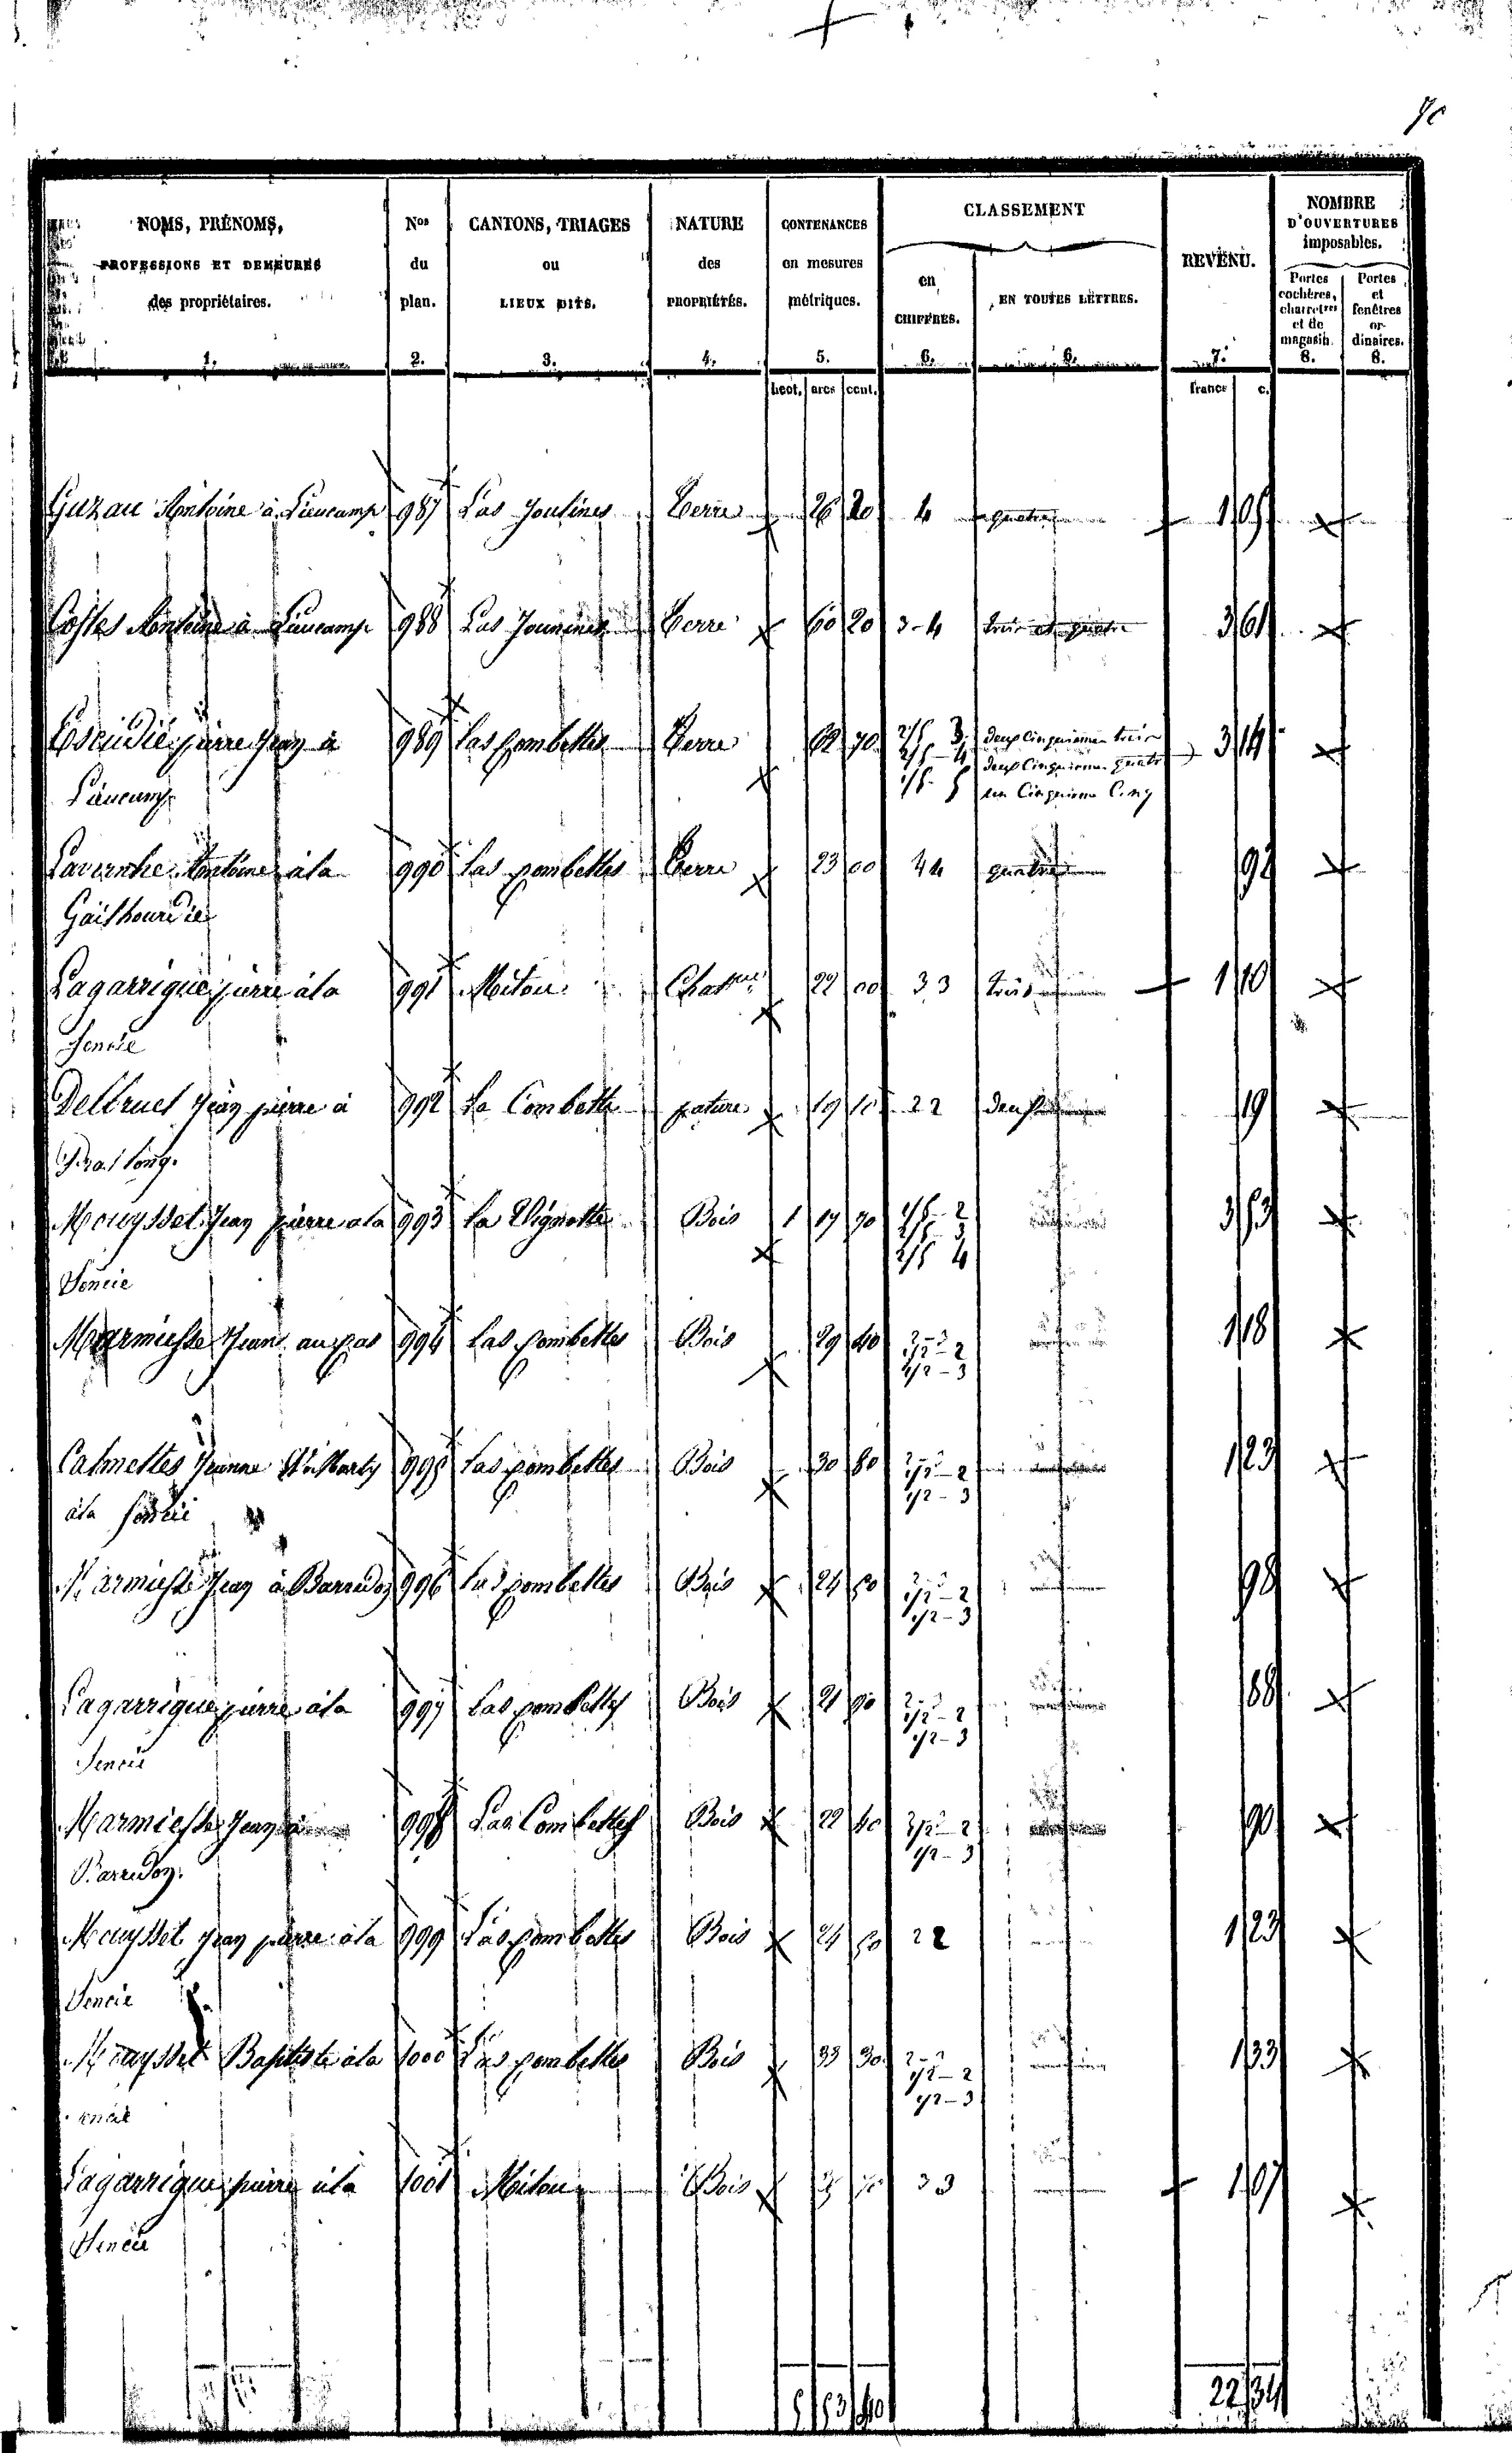 70
NOMS, PRÉNOMS, PROFESSIONS ET DEMEURES des propriétaires. 1.
Nos du plan. 2.
CANTONS, TRIAGES ou LIEUX DITS. 3.
NATURE des PROPRIÉTÉS. 4.
CONTENANCES en mesures métriques. 5.
CLASSEMENT
en CHIFFRES. 6.
EN TOUTES LETTRES. 6.
REVENU. 7.
NOMBRE D'OUVERTURES imposables.
Portes cochères, charretres et de magasin. 8.
Portes et fenêtres ordinaires. 8.
hect. ares cent. francs c.
Antoine à Lieucamp 987 Las Terre 26 20 4 quatre 1 05
Costes Antoine à Lieucamp 988 Las Terre 60 20 3-4 trois et quatre 3 61
Escudié pierre Jean à 989 las Combettes Terre 62 70 2/5 3 deux Cinquièmes trois 3 14
2/5 - 4 deux Cinquièmes quatre
Lieucamp 1/5 - 5 un Cinquième Cinq
Lavernhe Antoine à la 990 las Combettes Terre 23 00 4 4 quatre 92
Lagarrigue pierre à la 991 Mitou 22 00 3 3 trois 1 10
Sencie
Delbruel Jean pierre à 992 La Combette pature 19 10 2 2 deux 19
Prat long.
Mouysset Jean pierre à la 993 La Vignotte Bois 1 17 70 1/5 - 2 3 53
2/5 3
Sencie 2/5 4
Marmiesse Jean au pas 994 Las Combettes Bois 29 40 2-3 1 18
1/2 - 2
1/2 - 3
Calmettes Jeanne 995 Las Combettes Bois 30 80 1/2 - 2 1 23
à la 1/2 - 3
Marmiesse Jean à Barredon 996 Las Combettes Bois 24 50 1/2 - 2 98
1/2 - 3
Lagarrigue pierre à la 997 Las Combettes Bois 21 90 1/2 - 2 88
1/2 - 3
Sencie
Marmiesse Jean à 998 Las Combettes Bois 22 40 1/2 - 2 90
1/2 - 3
Barredon.
Mouysset Jean pierre à la 999 Las Combettes Bois 24 50 2 2 1 23
Sencie
Mouysset Baptiste à la 1000 Las Combettes Bois 33 30 1/2 - 2 1 33
1/2 - 3
Lagarrigue pierre à la 1001 Mitou Bois 3 3 1 07
Sencie
5 53 40 22 34